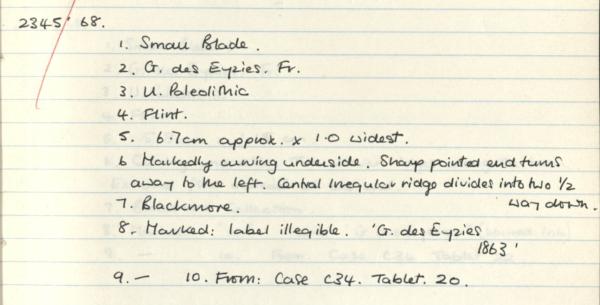 2345/68.
1. Small Blade.
2. G. des Eyzies. Fr.
3. U. Paleolithic
4. Flint.
5. 6.7cm approx. x 1.0 widest.
6 Markedly curving underside. Sharp pointed end turns
away to the left. Central irregular ridge divides into two 1/2
way down.
7. Blackmore.
8. Marked: label illegible. 'G. des Eyzies
1863'
9. — 10. From: Case C34. Tablet. 20.